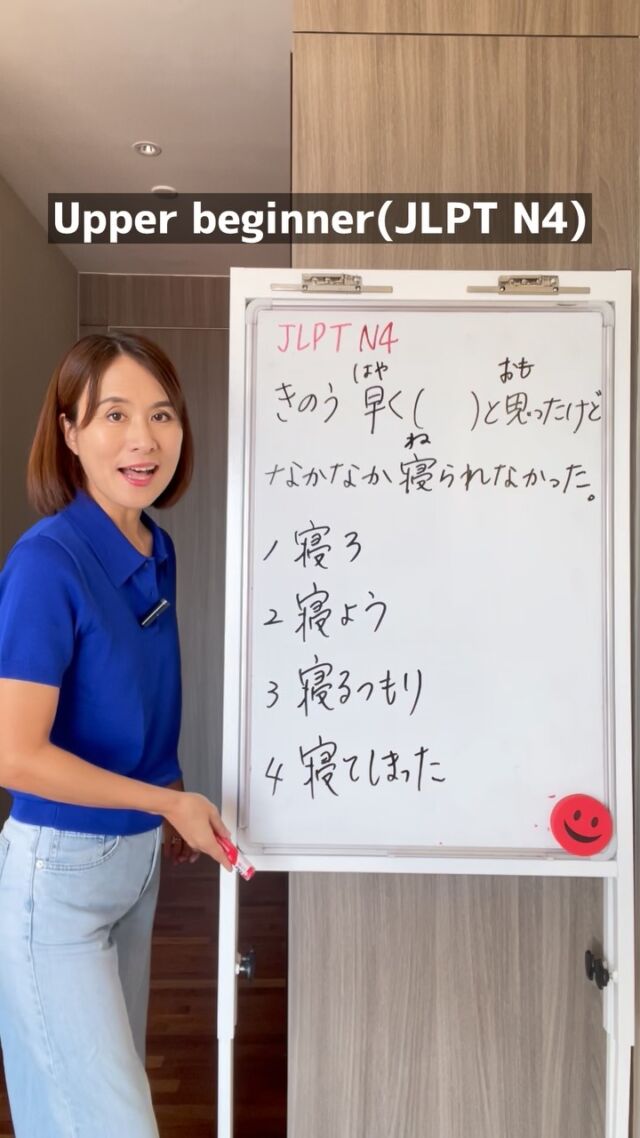 Upper beginner(JLPT N4)
JLPT N4
はや
おも
きのう 早く( )と思ったけど
ね
なかなか寝られなかった。
1 寝ろ
2 寝よう
3 寝るつもり
4 寝てしまった